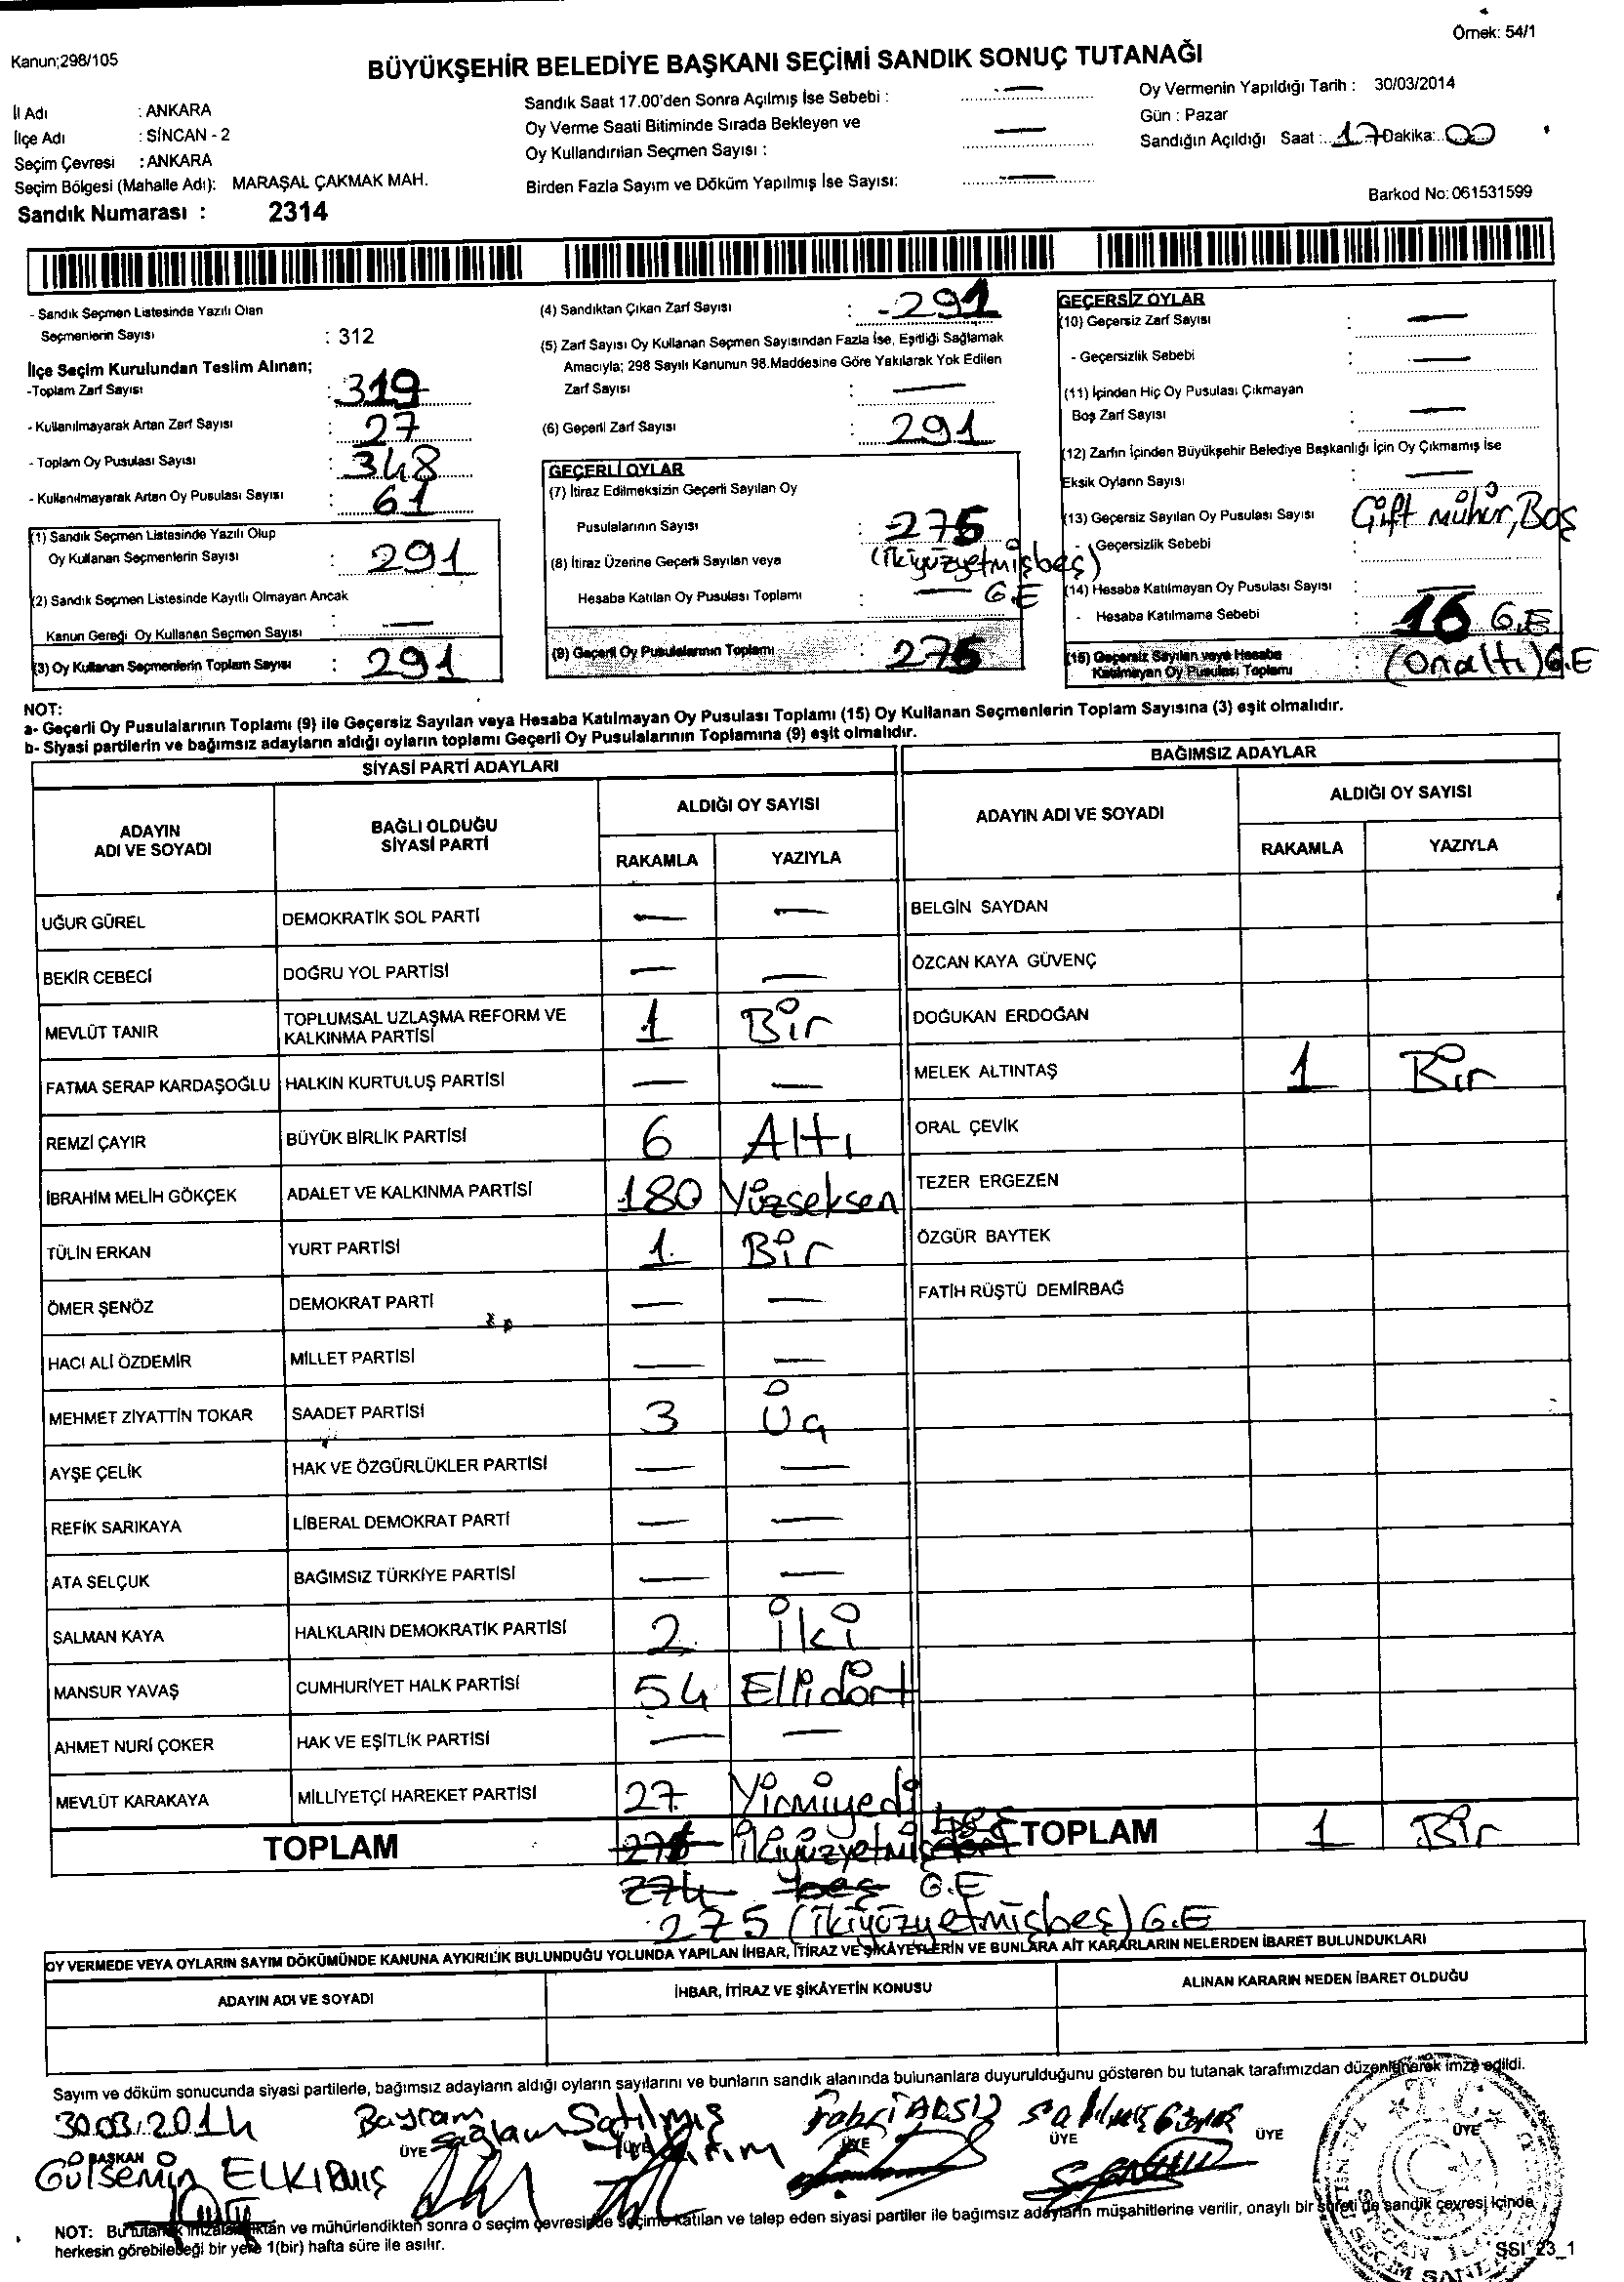 Örnek: 54/1
Kanun;298/105
BÜYÜKŞEHİR BELEDİYE BAŞKANI SEÇİMİ SANDIK SONUÇ TUTANAĞI
İl Adı : ANKARA
İlçe Adı : SİNCAN - 2
Seçim Çevresi : ANKARA
Seçim Bölgesi (Mahalle Adı): MARAŞAL ÇAKMAK MAH.
Sandık Numarası : 2314
Sandık Saat 17.00'den Sonra Açılmış İse Sebebi : —
Oy Verme Saati Bitiminde Sırada Bekleyen ve —
Oy Kullandırılan Seçmen Sayısı :
Birden Fazla Sayım ve Döküm Yapılmış İse Sayısı: —
Oy Vermenin Yapıldığı Tarih : 30/03/2014
Gün : Pazar
Sandığın Açıldığı Saat : 17 Dakika: 00
Barkod No: 061531599
- Sandık Seçmen Listesinde Yazılı Olan
Seçmenlerin Sayısı : 312
İlçe Seçim Kurulundan Teslim Alınan;
-Toplam Zarf Sayısı : 319
- Kullanılmayarak Artan Zarf Sayısı : 27
- Toplam Oy Pusulası Sayısı : 348
- Kullanılmayarak Artan Oy Pusulası Sayısı : 61
(1) Sandık Seçmen Listesinde Yazılı Olup
Oy Kullanan Seçmenlerin Sayısı : 291
(2) Sandık Seçmen Listesinde Kayıtlı Olmayan Ancak
Kanun Gereği Oy Kullanan Seçmen Sayısı : —
(3) Oy Kullanan Seçmenlerin Toplam Sayısı : 291
(4) Sandıktan Çıkan Zarf Sayısı : 291
(5) Zarf Sayısı Oy Kullanan Seçmen Sayısından Fazla İse, Eşitliği Sağlamak
Amacıyla; 298 Sayılı Kanunun 98.Maddesine Göre Yakılarak Yok Edilen
Zarf Sayısı : —
(6) Geçerli Zarf Sayısı : 291
GEÇERLİ OYLAR
(7) İtiraz Edilmeksizin Geçerli Sayılan Oy
Pusulalarının Sayısı : 275
(ikiyüzyetmişbeş)
(8) İtiraz Üzerine Geçerli Sayılan veya
Hesaba Katılan Oy Pusulası Toplamı : — G.E
(9) Geçerli Oy Pusulalarının Toplamı : 275
GEÇERSİZ OYLAR
(10) Geçersiz Zarf Sayısı : —
- Geçersizlik Sebebi : —
(11) İçinden Hiç Oy Pusulası Çıkmayan
Boş Zarf Sayısı : —
(12) Zarfın İçinden Büyükşehir Belediye Başkanlığı İçin Oy Çıkmamış İse
Eksik Oyların Sayısı : —
(13) Geçersiz Sayılan Oy Pusulası Sayısı : Çift mühür, Boş
- Geçersizlik Sebebi :
(14) Hesaba Katılmayan Oy Pusulası Sayısı : —
- Hesaba Katılmama Sebebi : 16 G.E
(15) Geçersiz Sayılan veya Hesaba
Katılmayan Oy Pusulası Toplamı : (Onaltı) G.E
NOT:
a- Geçerli Oy Pusulalarının Toplamı (9) ile Geçersiz Sayılan veya Hesaba Katılmayan Oy Pusulası Toplamı (15) Oy Kullanan Seçmenlerin Toplam Sayısına (3) eşit olmalıdır.
b- Siyasi partilerin ve bağımsız adayların aldığı oyların toplamı Geçerli Oy Pusulalarının Toplamına (9) eşit olmalıdır.
SİYASİ PARTİ ADAYLARI
ADAYIN ADI VE SOYADI BAĞLI OLDUĞU SİYASİ PARTİ ALDIĞI OY SAYISI
RAKAMLA YAZIYLA
UĞUR GÜREL DEMOKRATİK SOL PARTİ — —
BEKİR CEBECİ DOĞRU YOL PARTİSİ — —
MEVLÜT TANIR TOPLUMSAL UZLAŞMA REFORM VE KALKINMA PARTİSİ 1 Bir
FATMA SERAP KARDAŞOĞLU HALKIN KURTULUŞ PARTİSİ — —
REMZİ ÇAYIR BÜYÜK BİRLİK PARTİSİ 6 Altı
İBRAHİM MELİH GÖKÇEK ADALET VE KALKINMA PARTİSİ 180 Yüzseksen
TÜLİN ERKAN YURT PARTİSİ 1 Bir
ÖMER ŞENÖZ DEMOKRAT PARTİ — —
HACI ALİ ÖZDEMİR MİLLET PARTİSİ — —
MEHMET ZİYATTİN TOKAR SAADET PARTİSİ 3 Üç
AYŞE ÇELİK HAK VE ÖZGÜRLÜKLER PARTİSİ — —
REFİK SARIKAYA LİBERAL DEMOKRAT PARTİ — —
ATA SELÇUK BAĞIMSIZ TÜRKİYE PARTİSİ — —
SALMAN KAYA HALKLARIN DEMOKRATİK PARTİSİ 2 İki
MANSUR YAVAŞ CUMHURİYET HALK PARTİSİ 54 Ellidört
AHMET NURİ ÇOKER HAK VE EŞİTLİK PARTİSİ — —
MEVLÜT KARAKAYA MİLLİYETÇİ HAREKET PARTİSİ 27 Yirmiyedi
TOPLAM 275 ikiyüzyetmişdört beş
274 beş G.E
275 (ikiyüzyetmişbeş) G.E
BAĞIMSIZ ADAYLAR
ADAYIN ADI VE SOYADI ALDIĞI OY SAYISI
RAKAMLA YAZIYLA
BELGİN SAYDAN
ÖZCAN KAYA GÜVENÇ
DOĞUKAN ERDOĞAN
MELEK ALTINTAŞ 1 Bir
ORAL ÇEVİK
TEZER ERGEZEN
ÖZGÜR BAYTEK
FATİH RÜŞTÜ DEMİRBAĞ
TOPLAM 1 Bir
OY VERMEDE VEYA OYLARIN SAYIM DÖKÜMÜNDE KANUNA AYKIRILIK BULUNDUĞU YOLUNDA YAPILAN İHBAR, İTİRAZ VE ŞİKÂYETLERİN VE BUNLARA AİT KARARLARIN NELERDEN İBARET BULUNDUKLARI
ADAYIN ADI VE SOYADI İHBAR, İTİRAZ VE ŞİKÂYETİN KONUSU ALINAN KARARIN NEDEN İBARET OLDUĞU
Sayım ve döküm sonucunda siyasi partilerle, bağımsız adayların aldığı oyların sayılarını ve bunların sandık alanında bulunanlara duyurulduğunu gösteren bu tutanak tarafımızdan düzenlenerek imza edildi.
30.03.2014 Bayram Sağlam Satılmış
BAŞKAN ÜYE ÜYE ÜYE ÜYE ÜYE ÜYE
Gülsemin
T.C.
NOT: Bu tutanak imzalandıktan ve mühürlendikten sonra o seçim çevresinde seçime katılan ve talep eden siyasi partiler ile bağımsız adayların müşahitlerine verilir, onaylı bir sureti de sandık çevresi içinde
herkesin görebileceği bir yere 1(bir) hafta süre ile asılır.
SSI_23_1